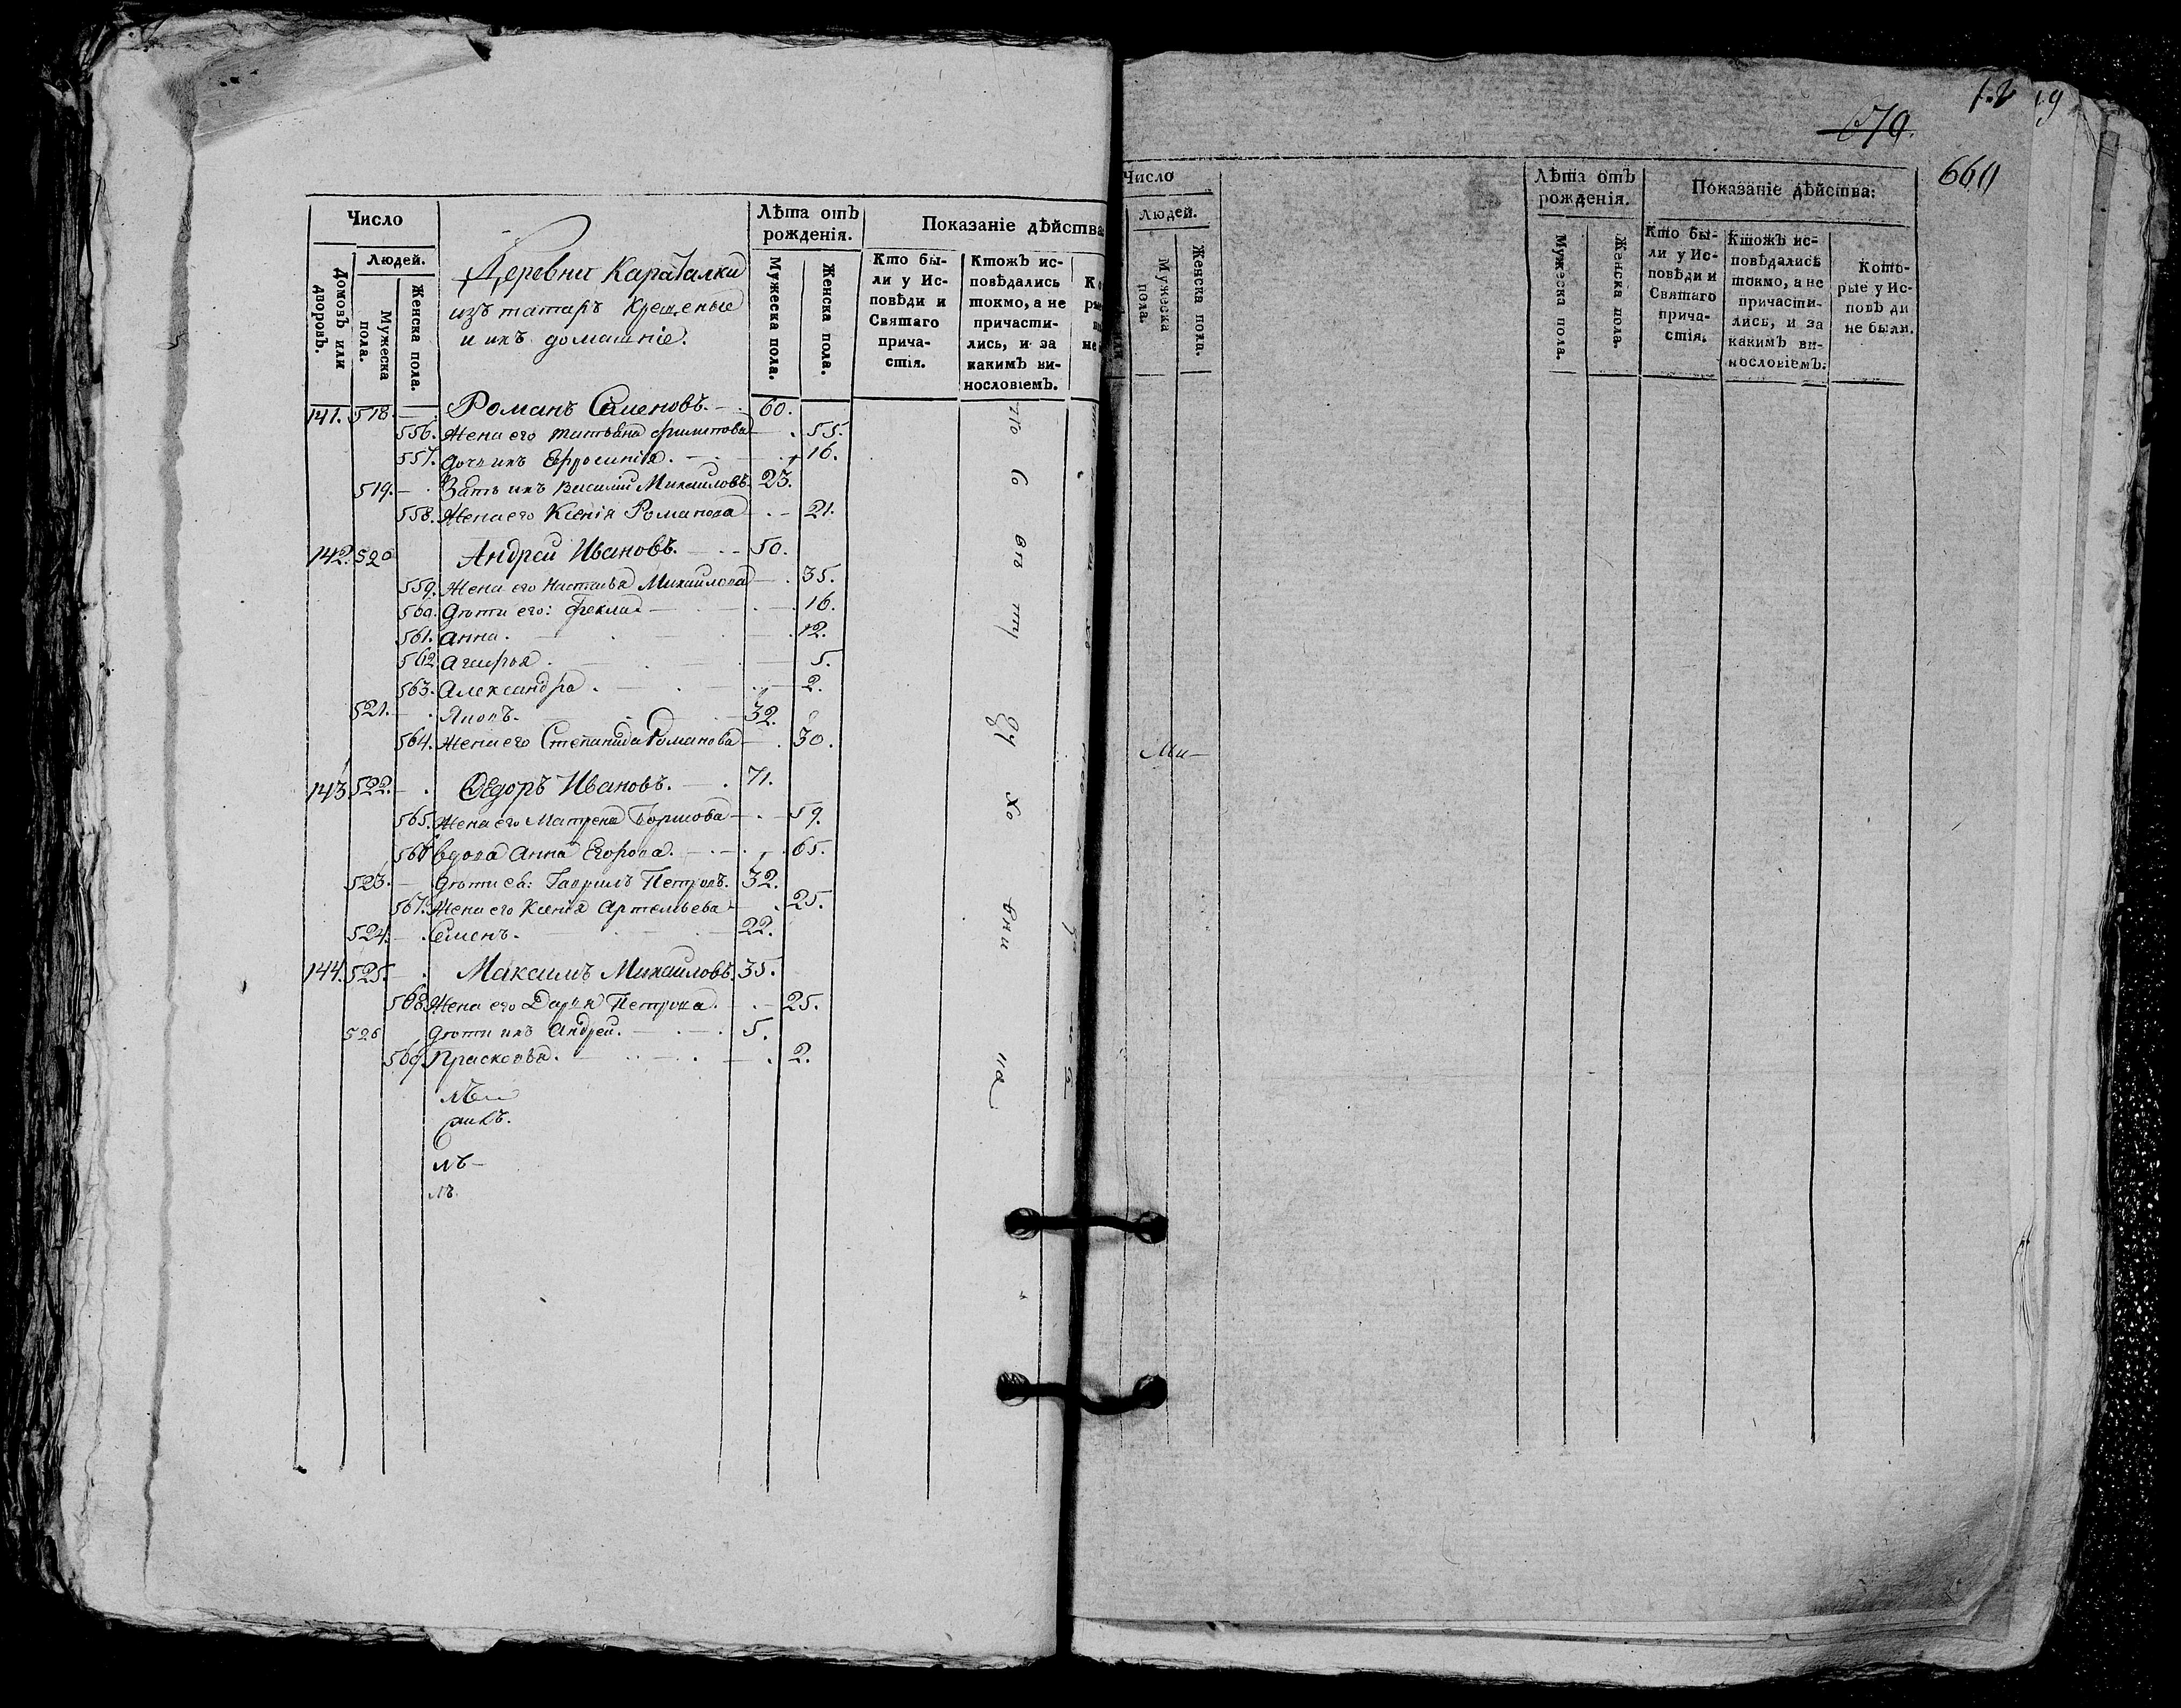 Число
Людей.
Домовъ или дворовъ.
Мужеска пола.
Женска пола.
Деревни Караталки
изъ татаръ крещеные
и ихъ домашніе.
Лѣта отъ рожденія.
Мужеска пола.
Женска пола.
Показаніе дѣйства
Кто бы-
ли у Ис-
повѣди и
Святаго
прича-
стія.
Ктожъ ис-
повѣдались
токмо, а не
причасти-
лись, и за
какимъ ви-
нословіемъ.
141. 518. Романъ Семеновъ. 60.
556. Жена его Татьяна 55.
557. Дочь ихъ Ефросинія. 16.
519. Зять ихъ Василій Михаиловъ. 23.
558. Жена его Ксенія Романова 21.
142. 520 Андрей Ивановъ. 50.
559. Жена его Настасья Михаилова 35.
560. Дѣти его: Фекла 16.
561. Анна. 12.
562. 5.
563. Александра. 2.
521. 32.
564. Жена его Степанида Романова 30.
143. 522. Ѳедоръ Ивановъ. 71.
565. Жена его Матрена 59.
566 вдова Анна Егорова. 65.
523. Дѣти ея: Гаврилъ Петровъ. 32.
567. Жена его Ксенія Артемьева 25.
524. Семенъ. 22.
144. 525. Максимъ Михаиловъ. 35.
568. Жена его Дарья Петрова. 25.
526 Дѣти ихъ Андрей. 5.
569. Прасковья. 2.
лъ
лъ.
1то
со
въ
ту
ду
хо
вни
на
679.
660
Число
Людей.
Мужеска пола.
Женска пола.
Лѣта отъ рожденія.
Мужеска пола.
Женска пола.
Показаніе дѣйства:
Кто бы-
ли у Ис-
повѣди и
Святаго
прича-
стія.
Ктожъ ис-
повѣдались
токмо, а не
причасти-
лись, и за
какимъ ви-
нословіемъ.
Кото-
рые у Ис-
повѣди
не были.
Ми-